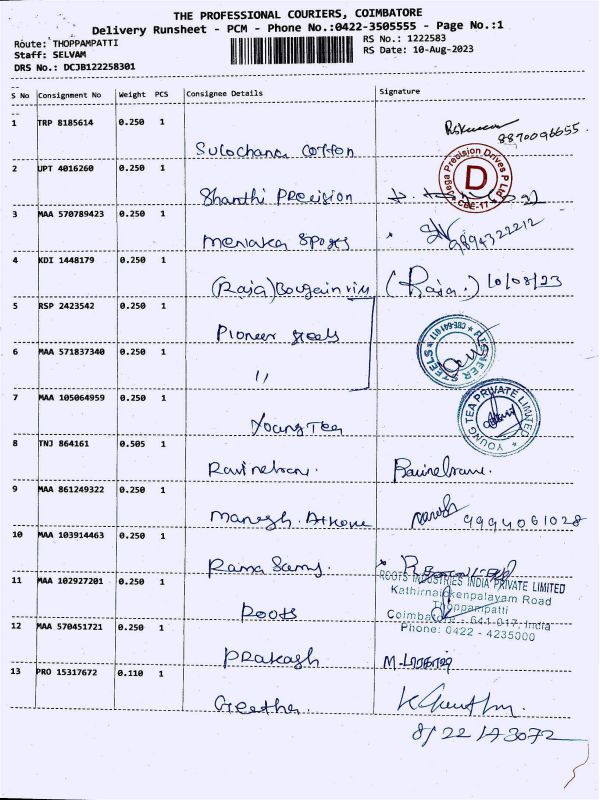 THE PROFESSIONAL COURIERS, COIMBATORE
Delivery Runsheet - PCM - Phone No.:0422-3505555 - Page No.:1
Route: THOPPAMPATTI
RS No.: 1222583
Staff: SELVAM
RS Date: 10-Aug-2023
DRS No.: DCJB122258301
S No Consignment No Weight PCS Consignee Details Signature
1 TRP 8185614 0.250 1
8870096655.
Sulochana Cotton
2 UPT 4016260 0.250 1
Jega Precision Drives P Ltd
D
CBE-17
Shanthi Precision
3 MAA 570789423 0.250 1
9894322212
4 KDI 1448179 0.250 1
(Raja) (Raja.) 10/08/23
5 RSP 2423542 0.250 1
Pioneer steels
PIONEER STEELS CBE-641 017
6 MAA 571837340 0.250 1
11
7 MAA 105064959 0.250 1
YOUNG TEA PRIVATE LIMITED
Young Tea
8 TNJ 864161 0.505 1
9 MAA 861249322 0.250 1
9994061028
10 MAA 103914463 0.250 1
Rama Samy.
11 MAA 102927201 0.250 1
ROOTS INDUSTRIES INDIA PRIVATE LIMITED
Kathirnaickenpalayam Road
Thoppampatti
Coimbatore - 641 017, India
Phone: 0422 - 4235000
Roots
12 MAA 570451721 0.250 1
Prakash
13 PRO 15317672 0.110 1
Geetha